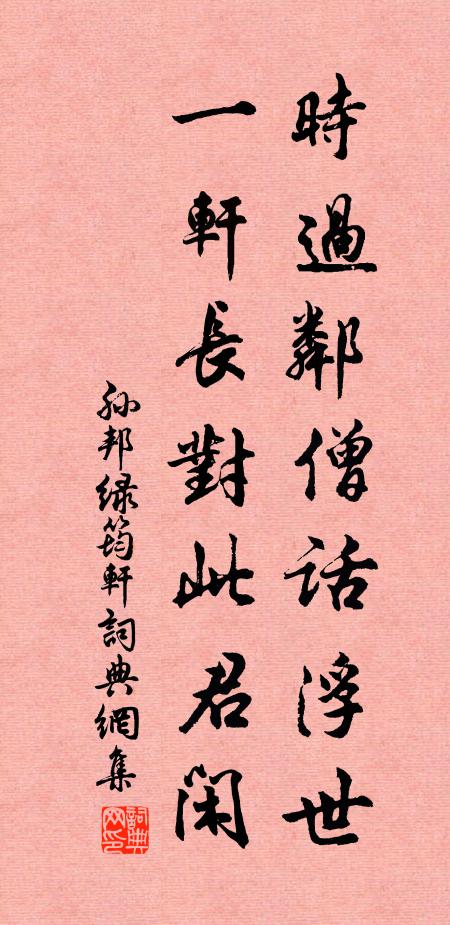 時過鄰僧話浮世
一軒長對此君閑
孫邦綠筠軒詞典網集
詞典
网印